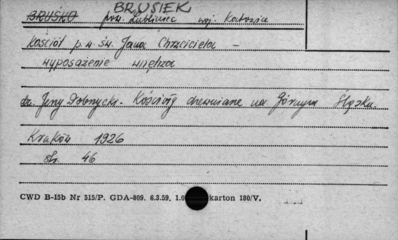 BRUSIEK
BRUŚKO pow. Lubliniec woj. Katowice
Kościół p.w. św. Jana Chrzciciela –
wyposażenie wnętrza
dr. Jerzy Dobrzycki - Kościoły drewniane na Górnym Śląsku,
Kraków 1926
str. 46
CWD B-15b Nr 515/P. GDA-809. 6.3.59. 1.0 karton 180/V.